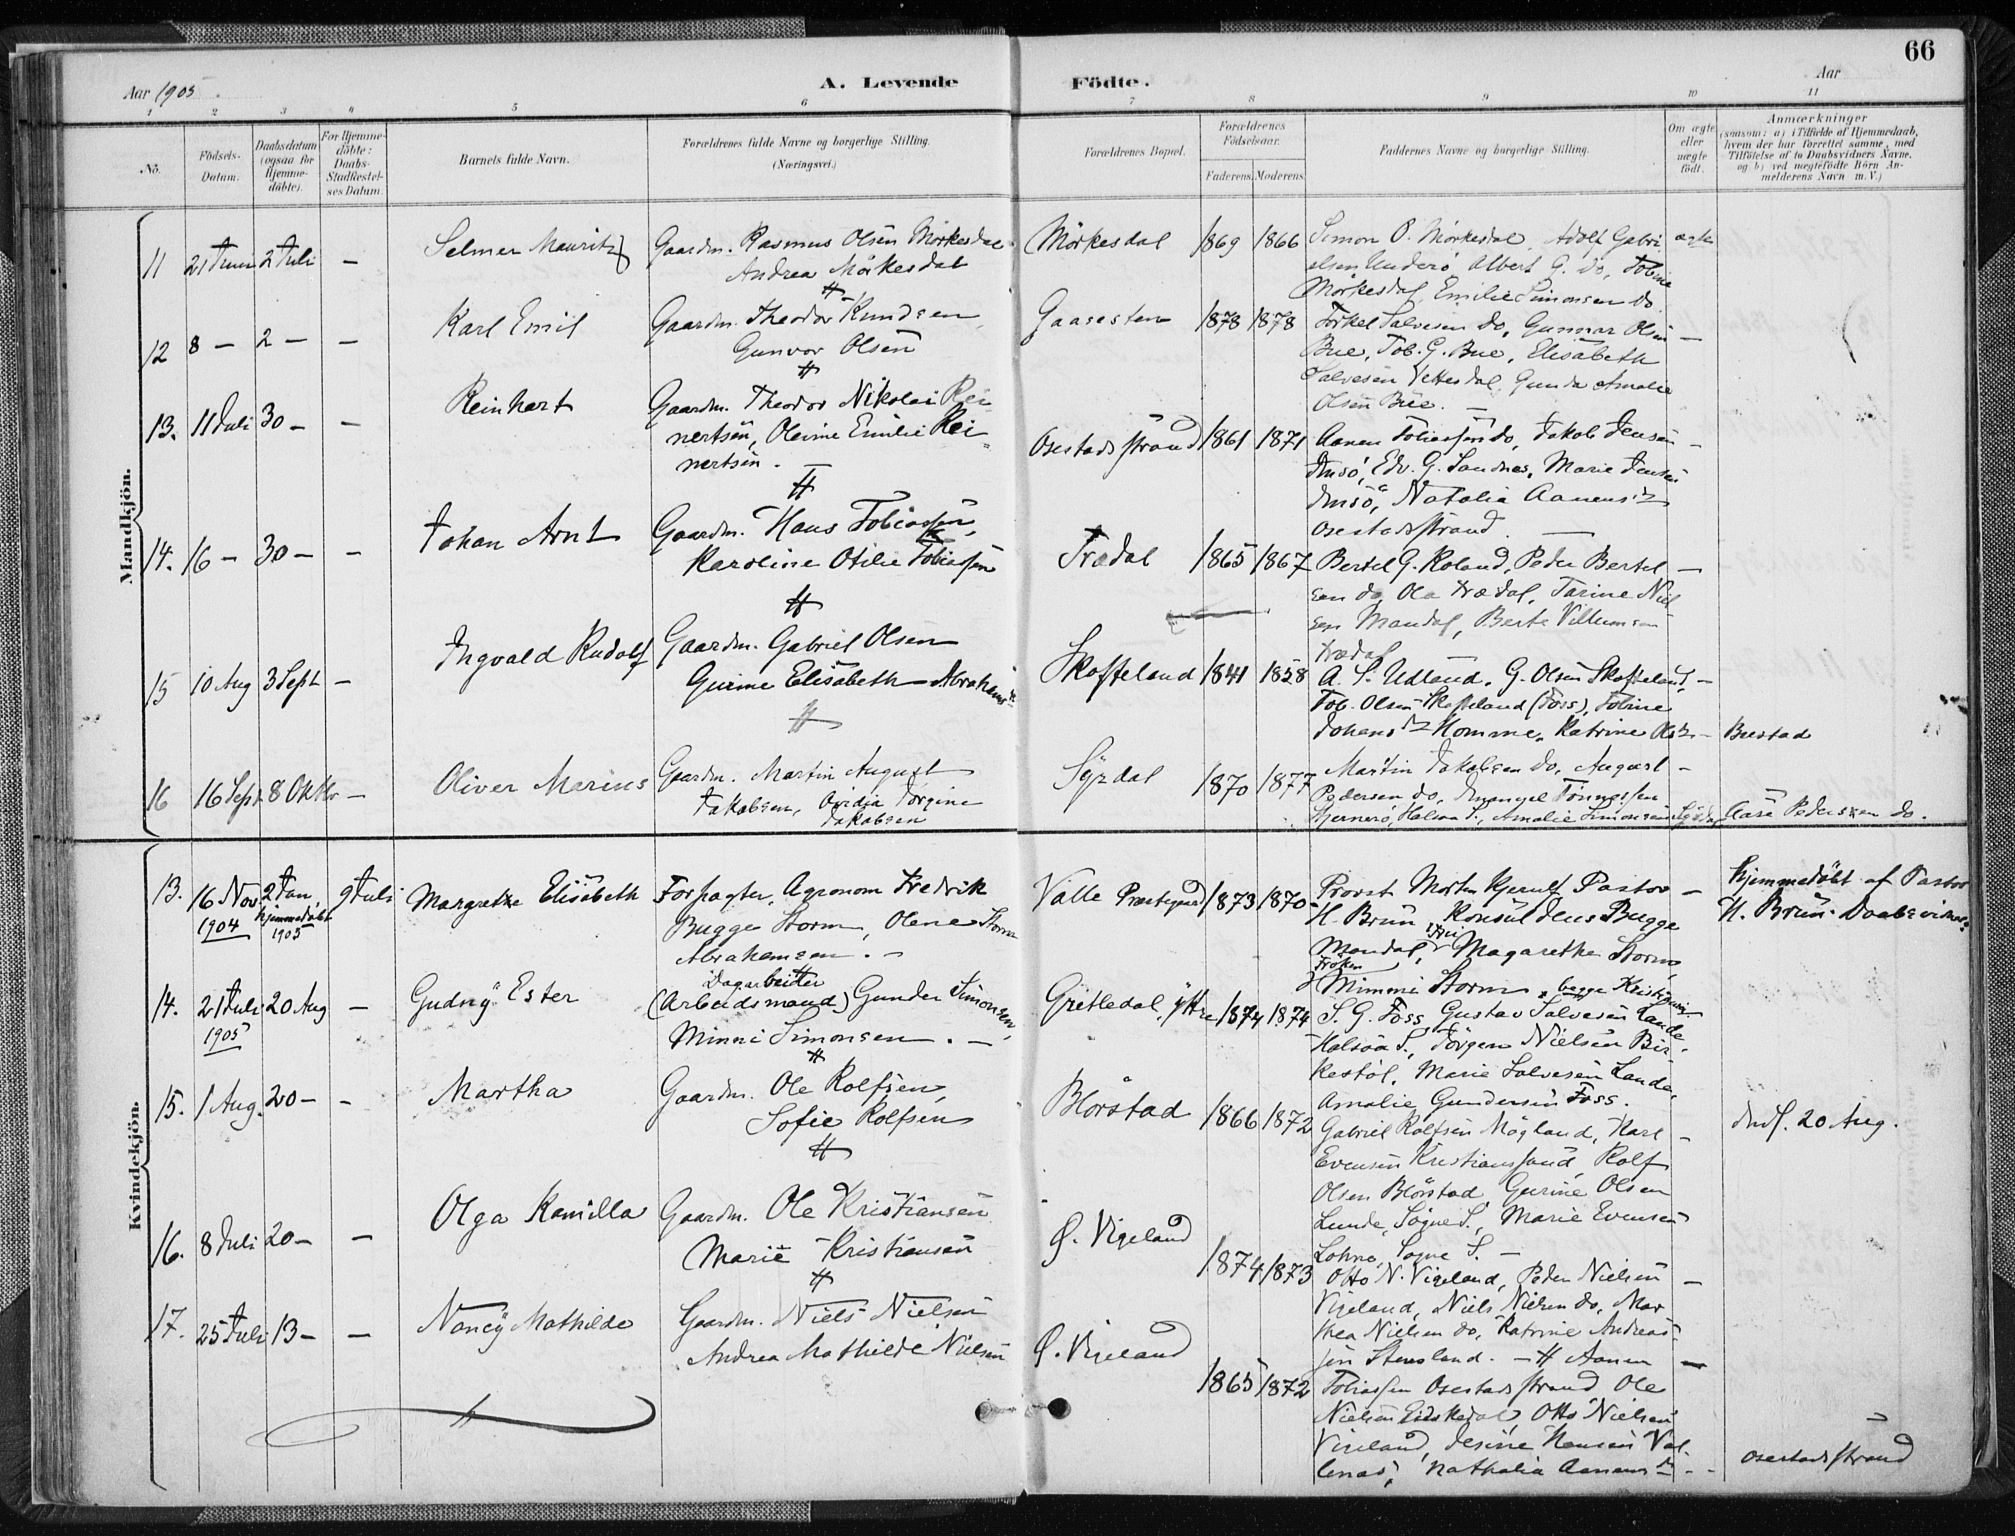 66
Aar 1905.
A. Levende Födte.
Aar
1 2 3 4 5 6 7 8 9 10 11
No.
Födsels-Datum.
Daabsdatum (ogsaa for Hjemme-döbte).
For Hjemme-döbte: Daabs-Stadfæstelses Datum.
Barnets fulde Navn.
Forældrenes fulde Navne og borgerlige Stilling. (Næringsvei.)
Forældrenes Bopæl.
Forældrenes Födselsaar.
Faderens. Moderens.
Faddernes Navne og borgerlige Stilling.
Om ægte eller uægte födt.
Anmærkninger
(saasom: a) i Tilfælde af Hjemmedaab,
hvem der har forrettet samme, med
Tilföielse af to Daabsvidners Navne,
og b) ved uægtefödte Börn An-
melderens Navn m. V.)
Mandkjön.
11 21 Juni 2 Juli — Selmer Mauritz
Gaardm. Rasmus Olsen Mörkesdal
Andrea Mörkesdal
Mörkesdal 1869 1866
Simon O. Mörkesdal, Adolf Gabri- ægte
elsen Underö, Albert G. do, Tobine
Mörkesdal, Emilie Simonsen do
12 8 — 2 — — Karl Emil
Gaardm. Theodor Knudsen,
Gunvor Olsen
Gaasesten 1878 1878
Torkel Salvesen do, Gunnar Olsen —
Bue, Tob. G. Bue, Elisabeth
Salvesen Vettesdal, Gunda Amalie
Olsen Bue. —
13. 11 Juli 30 — — Reinhart
Gaardm. Theodor Nikolai Rei-
nertsen, Olevine Emilie Rei-
nertsen. —
Osestadstrand 1861 1871
Aanen Tobiassen do, Jakob Jensen —
Imsö, Edv. G. Sandnes, Marie Jensen
Imsö, Natalia Aanensdr
Osestadstrand. —
14. 16 — 30 — — Johan Arnt
Gaardm. Hans Tobiassen,
Karoline Otilie Tobiassen
Trædal 1865 1867
Bertel G. Roland, Peder Bertel- —
sen do, Ola Trædal, Tarine Niel-
sen Mandal, Berte Villumsen
Trædal —
15 10 Aug 3 Sept — Ingvald Rudolf
Gaardm. Gabriel Olsen
Gurine Elisabeth Abrahamsdr
Skoffeland 1841 1858
A. S. Udland, G. Olsen Skoffeland, —
Tob. Olsen Skoffeland (Foss), Tobine
Johansdr Homme, Katrine Olsdr — Bustad
16 16 Sept 8 Oktbr — Oliver Marius
Gaardm. Martin August
Jakobsen, Ovidja Jorgine
Jakobsen
Syrdal 1870 1877
Martin Jakobsen do, August —
Pedersen do, Emanuel Tönnessen
Hjernerö, Halsaa S., Amalie Simonsen Syrdal, Aase Pedersen do.
Kvindekjön.
13. 16 Nov 1904 2 Jan. hjemmedöbt 1905 9 Juli Margrethe Elisabeth
Forpagter, Agronom Fredrik
Bugge Storm, Olene Storm
Abrahamsen. —
Valle Præstegaard 1873 1870
Provst Morten Kjerulf Pastor —
H. Brun, Konsul Jens Bugge
Mandal, Frü Magarethe Storm,
Fröken Mimmi Storm, begge Kristiania
Hjemmedöbt af Pastor
H. Brun. Daabsvidner:
14. 21 Juli 1905 20 Aug — Gudny Ester
Dagarbeider
(Arbeidsmand) Gunder Simonsen,
Minni Simonsen. —
Gretledal, yttre 1874 1874
S. G. Foss, Gustav Salvesen Lande,
Halsaa S., Jörgen Nielsen Bir-
kestöl, Marie Salvesen Lande,
Amalie Gundersen Foss.
15. 1 Aug. 20 — - Martha
Gaardm. Ole Rolfsen,
Sofie Rolfsen
Blörstad 1866 1872
Gabriel Rolfsen Mögland, Karl —
Evensen Kristianssand, Rolf
Olsen Blörstad, Gurine Olsen
Lunde, Sögne S., Marie Evensen
Lohne, Sogne S. —
Indf. 20 Aug.
16. 8 Juli 20 — — Olga Kamilla
Gaardm. Ole Kristiansen
Marie Kristiansen
Ö. Vigeland 1874 1873
Otto N. Vigeland, Peder Nielsen —
Vigeland, Niels Nielsen do, Mar-
thea Nielsen do, Katrine Andreas-
sen Stensland. —
17. 25 Juli 13 — — Nancy Mathilde
Gaardm. Niels Nielsen
Andrea Mathilde Nielsen
Ö. Vigeland 1865 1872
Aanen —
Tobiassen Osestadstrand, Ole
Nielsen Eidskedal, Otto Nielsen
Vigeland, Jesine Hansen Val-
lenas, Nathalia Aanensdr — Osestadstrand